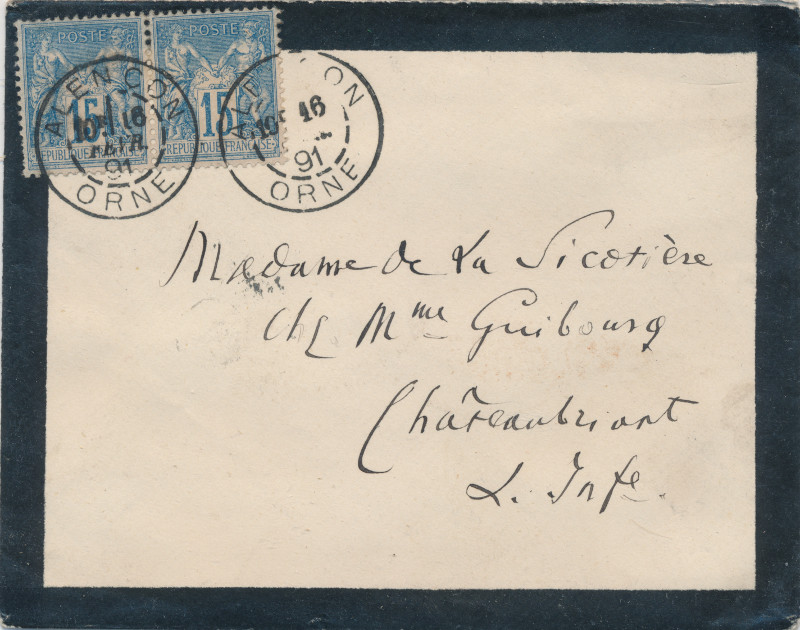 POSTE POSTE
15 15
REPUBLIQUE FRANÇAISE REPUBLIQUE FRANÇAISE
ALENÇON
16
FEVR.
91
ORNE
ALENÇON
16
91
ORNE
Madame de La Sicotière
chez Mme Guibourg
Châteaubriant
L. Infre.